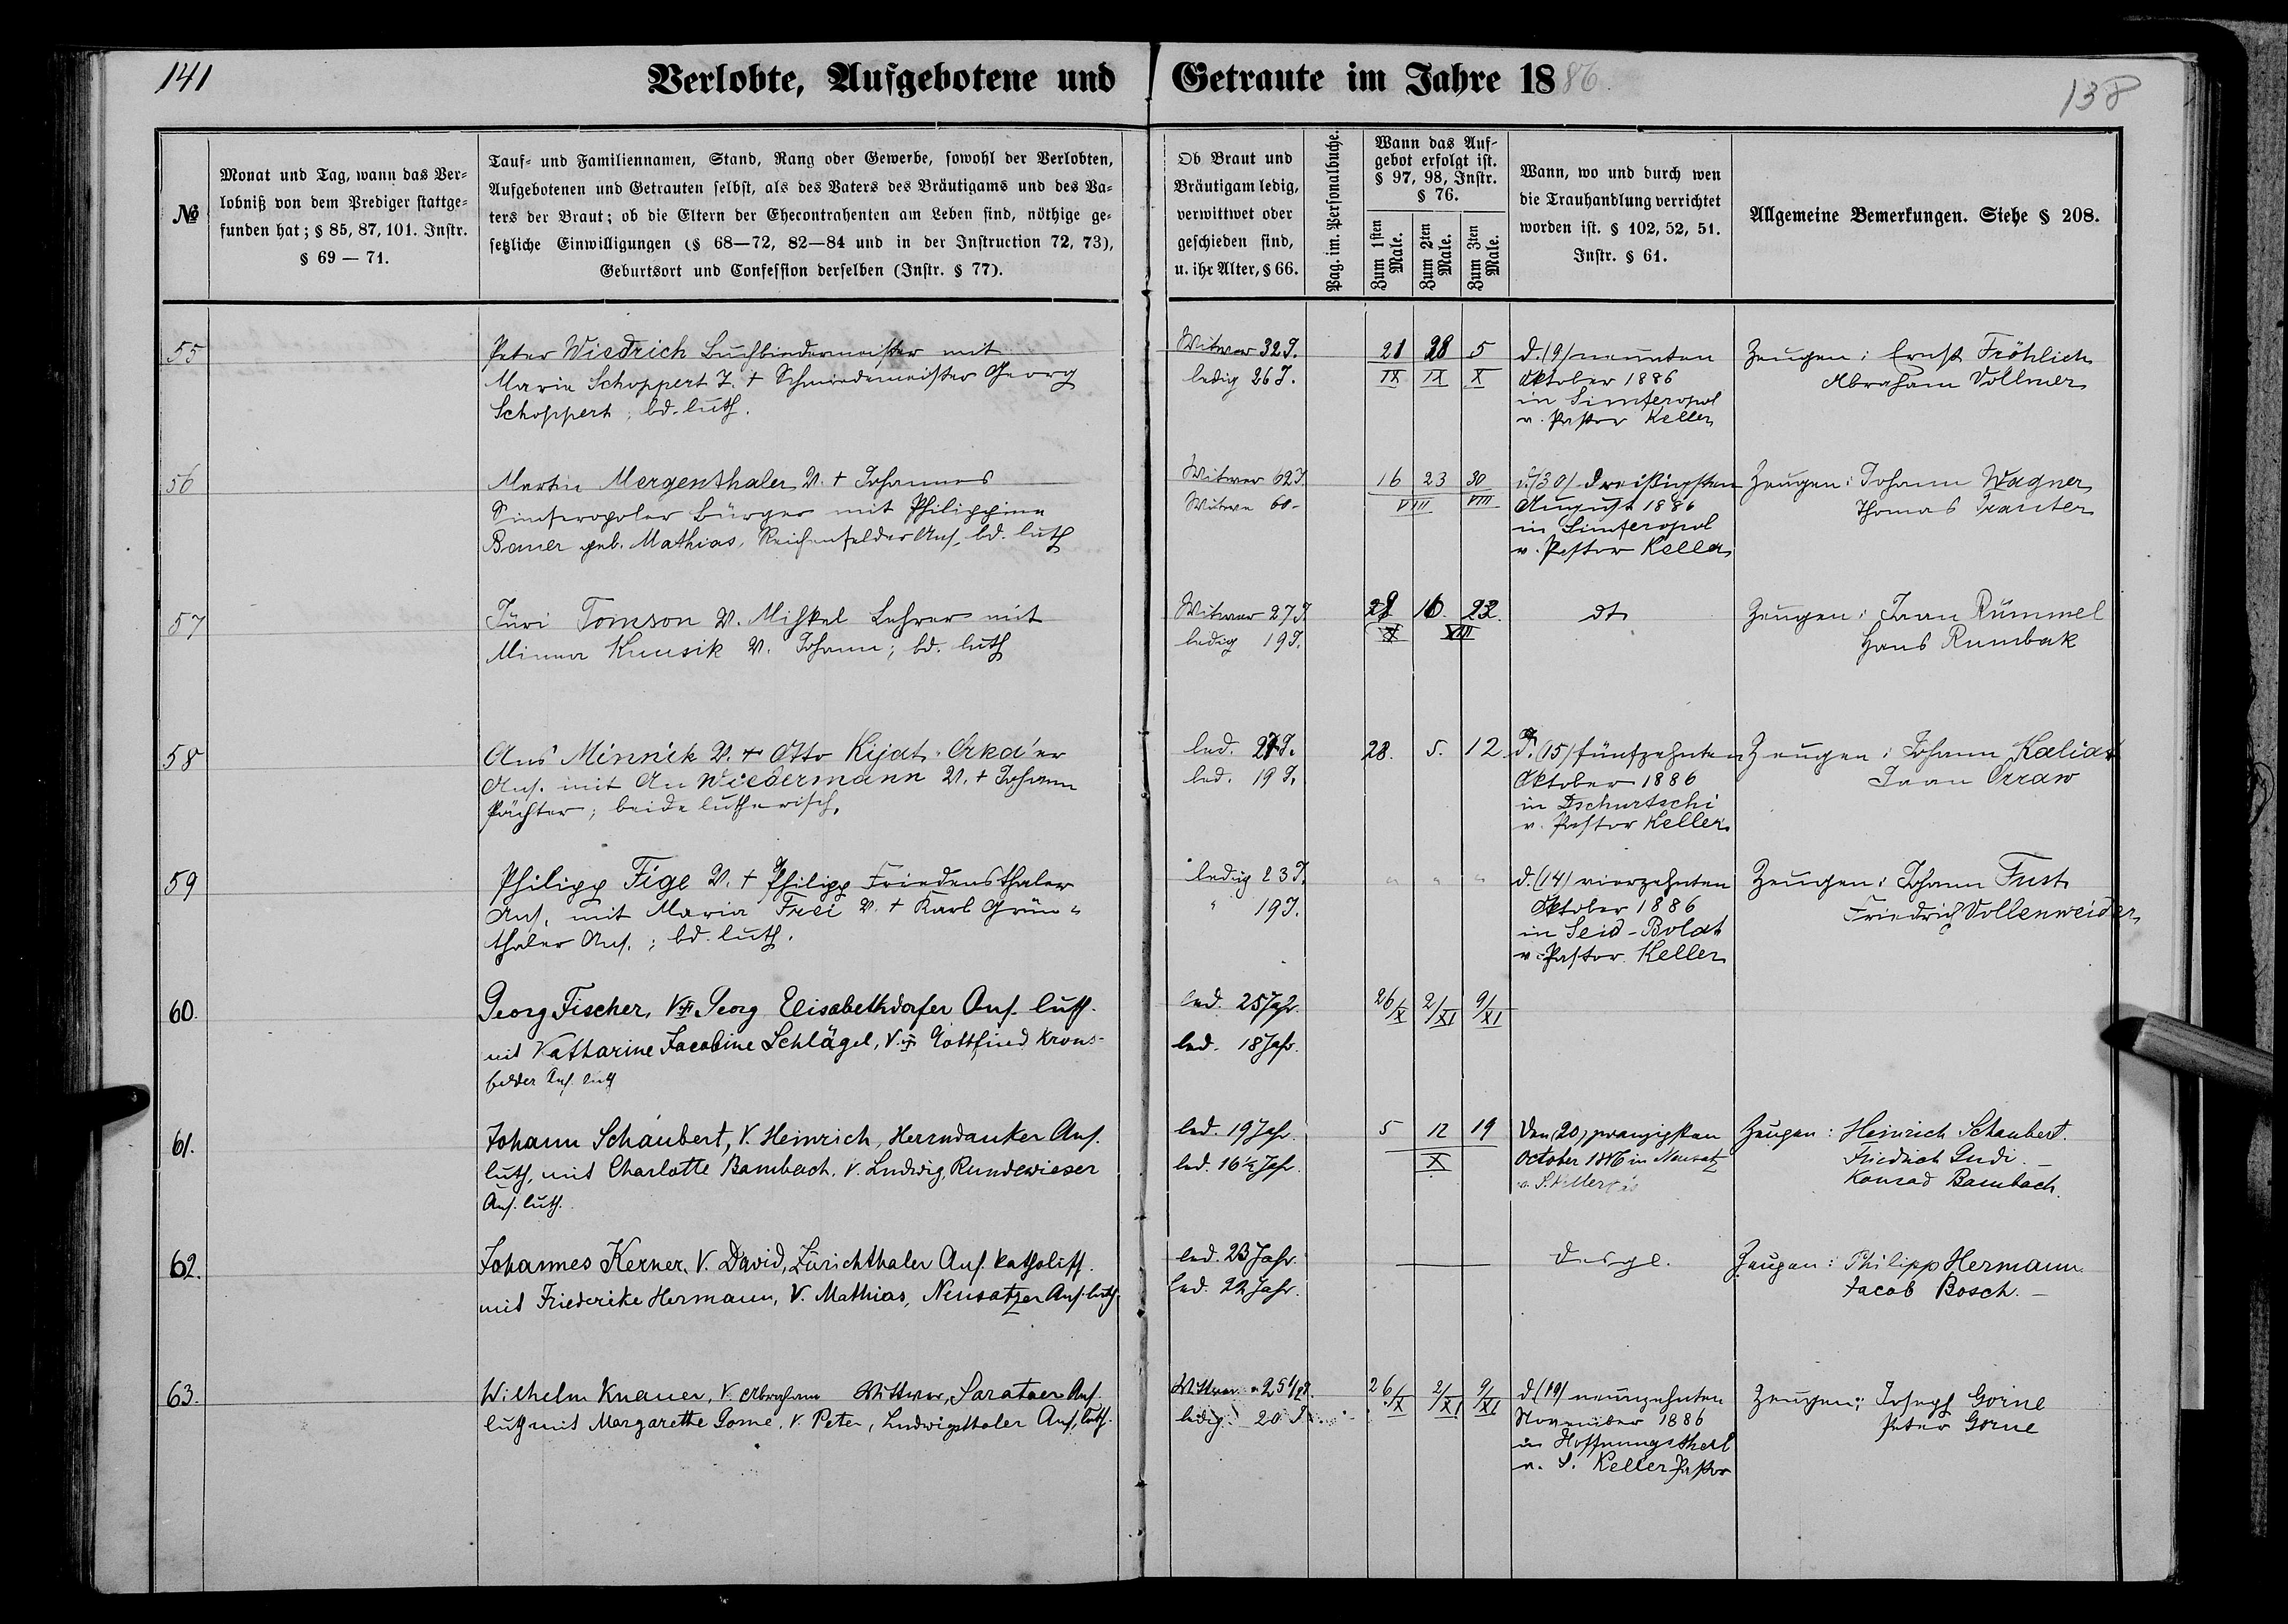 141
Verlobte, Aufgebotene und Getraute im Jahre 1886.
138
№
Monat und Tag, wann das Ver-
lobniß von dem Prediger stattge-
funden hat; § 85, 87, 101. Instr.
§ 69 — 71.
Tauf- und Familiennamen, Stand, Rang oder Gewerbe, sowohl der Verlobten,
Aufgebotenen und Getrauten selbst, als des Vaters des Bräutigams und des Va-
ters der Braut; ob die Eltern der Ehecontrahenten am Leben sind, nöthige ge-
setzliche Einwilligungen (§ 68—72, 82—84 und in der Instruction 72, 73),
Geburtsort und Confession derselben (Instr. § 77).
Ob Braut und
Bräutigam ledig,
verwittwet oder
geschieden sind,
u. ihr Alter, § 66.
Pag. im. Personalbuche.
Wann das Auf-
gebot erfolgt ist.
§ 97, 98, Instr.
§ 76.
Zum 1sten
Male.
Zum 2ten
Male.
Zum 3ten
Male.
Wann, wo und durch wen
die Trauhandlung verrichtet
worden ist. § 102, 52, 51.
Instr. § 61.
Allgemeine Bemerkungen. Siehe § 208.
55
Peter Wiedrich Buchbindermeister mit
Maria Schoppert T. + Schmiedemeister Georg
Schoppert, bd. luth.
Witwer 32 J.
ledig 26 J.
21 28 5
IX IX X
d. (9) neunten
Oktober 1886
in Simferopol
v. Pastor Keller
Zeugen: Ernst Fröhlich
Abraham Vollmer
56
Martin Mergenthaler V. + Johannes
Simferopoler Bürger mit Philippine
Bauer geb. Mathias, Reichenfelder Ans. bd. luth
Witwer 62 J.
Witwe 60-
16 23 30
VIII VIII
d. (30) dreißigsten
August 1886
in Simferopol
v. Pastor Keller
Zeugen: Johann Wagner
Thomas Trauter
57
Jüri Tomson V. Mihkel Lehrer mit
Minna Kuusik V. Johann; bd. luth
Witwer 27 J.
ledig 19 J.
16 23.
VIII
dt
Zeugen: Jaan Rümmel
Hans Rumbak
58
Ans Minnik V. + Otto Kijat-Orka'er
Ans. mit An Wiedermann V. + Johann
Pächter; beide lutherisch.
led. 27 J.
led. 19 J.
28. 5. 12
d. (15) fünfzehnten
Oktober 1886
in Dschurtschi
v. Pastor Keller
Zeugen: Johann Kaliat
Jaan Orraw
59
Philipp Fige V. + Philipp Friedensthaler
Ans. mit Maria Frei V. + Karl Grün-
thaler Ans.; bd. luth.
ledig 23 J.
" 19 J.
" " "
d. (14) vierzehnten
Oktober 1886
in Seid-Bolat
v. Pastor Keller
Zeugen: Johann Fust
Friedrich Vollenweider
60.
Georg Fischer, V. + Georg Elisabethdorfer Ans. luth.
mit Katharine Jacobine Schlägel, V. + Gottfried Krons-
felder Ans. luth
led. 25 Jahr.
led. 18 Jahr.
26/X 2/XI 9/XI
61.
Johann Schaubert, V. Heinrich, Herrndanker Ans.
luth, mit Charlotte Bambach, V. Ludwig, Rundewieser
Ans. luth.
led. 19 Jahr.
led. 16½ Jahr.
5 12 19
X
Den (20) zwanzigsten
October 1886 in Neusatz
v. P. Keller
Zeugen: Heinrich Schaubert.
Friedrich Gudi.
Konrad Bambach.
62.
Johannes Kerner, V. David, Zürichthaler Ans. katholisch.
mit Friederike Hermann, V. Mathias, Neusatzer Ans. luth.
led. 23 Jahr.
led. 22 Jahr.
desgl.
Zeugen: Philipp Hermann.
Jacob Bosch.
63.
Wilhelm Knauer, V. Abraham Wittwer, Sarataer Ans.
luth mit Margarethe Gorne, V. Peter, Ludwigsthaler Ans. luth.
Wittwer 25½ J.
ledig 20 J.
26/X 2/XI 9/XI
d (19) neunzehnten
November 1886
in Hoffnungsthal
v. S. Keller Pastor
Zeugen: Joseph Gorne
Peter Gorne